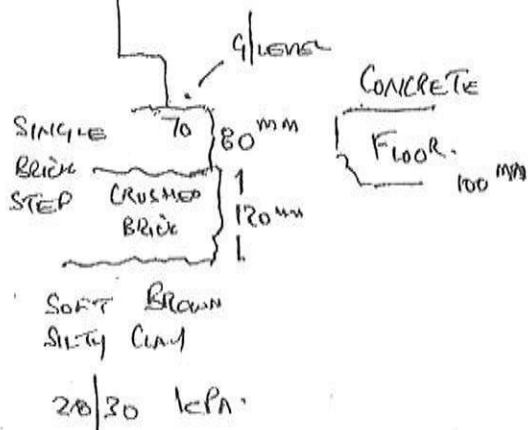 G/LEVEL
CONCRETE
FLOOR.
100 MM
SINGLE
BRICK
STEP
70
80 MM
CRUSHED
BRICK
120 MM
SOFT BROWN
SILTY CLAY
20/30 kPA.